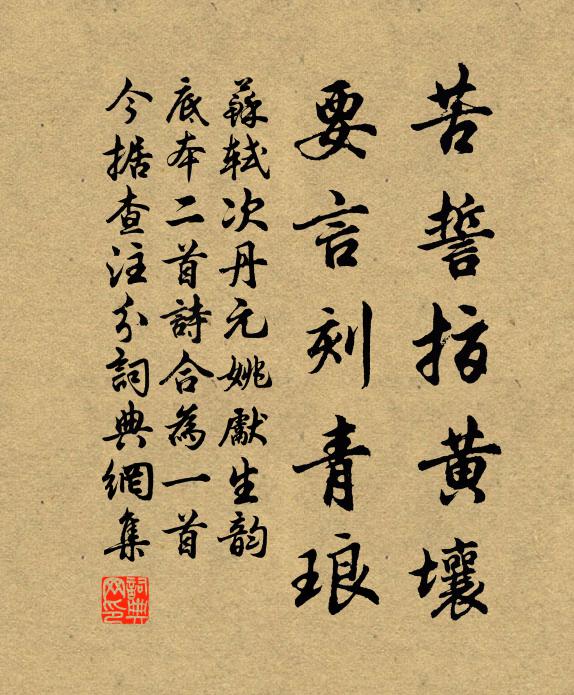 苦誓指黃壤
要言刻青琅
蘇軾次丹元姚獻生韵
底本二首詩合為一首
今据查注分詞典網集